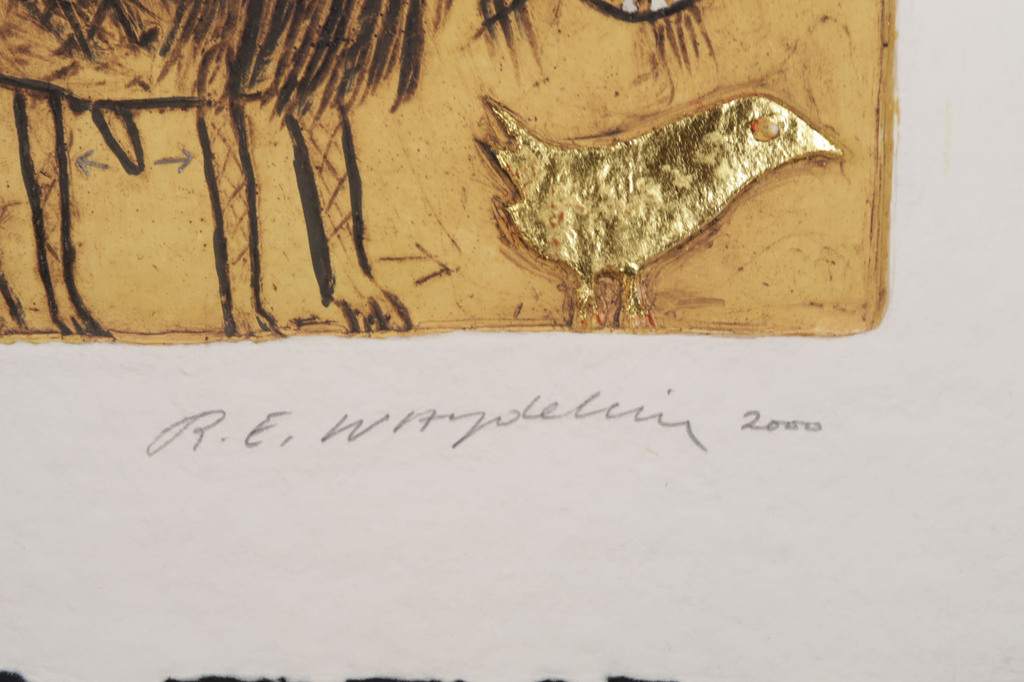 R. E. WAydelich 2000